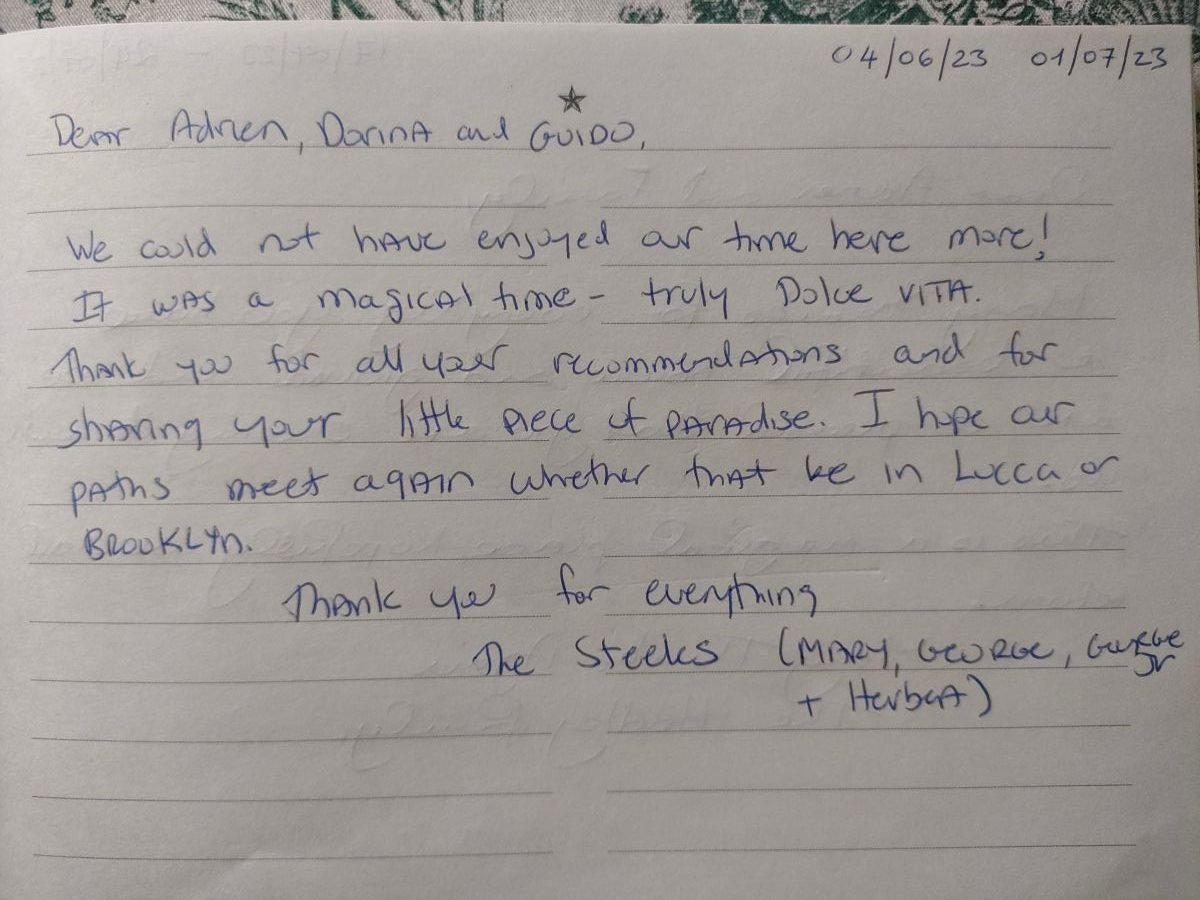 04/06/23 01/07/23
Dear Adrien, DorinA and GUIDO,
We could not HAVE enjoyed our time here more!
It WAS a magicAl time - truly Dolce VITA.
Thank you for all your recommendAtions and for
shAring your little piece of PArAdise. I hope our
PAths meet agAin whether thAt be in Lucca or
BROOKLYn.
ThAnk you for everything
The Steeks (MARY, GEORGE, GEORGE
Jr
+ HerberA)